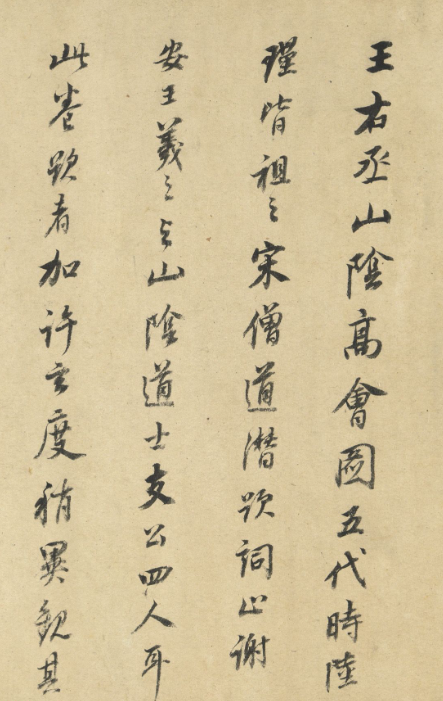 王右丞山陰高會圖五代時陸
瑾皆祖之宋僧道潛跋詞止謝
安王羲之與山陰道士支公四人耳
此卷跋者加許玄度稍異観其